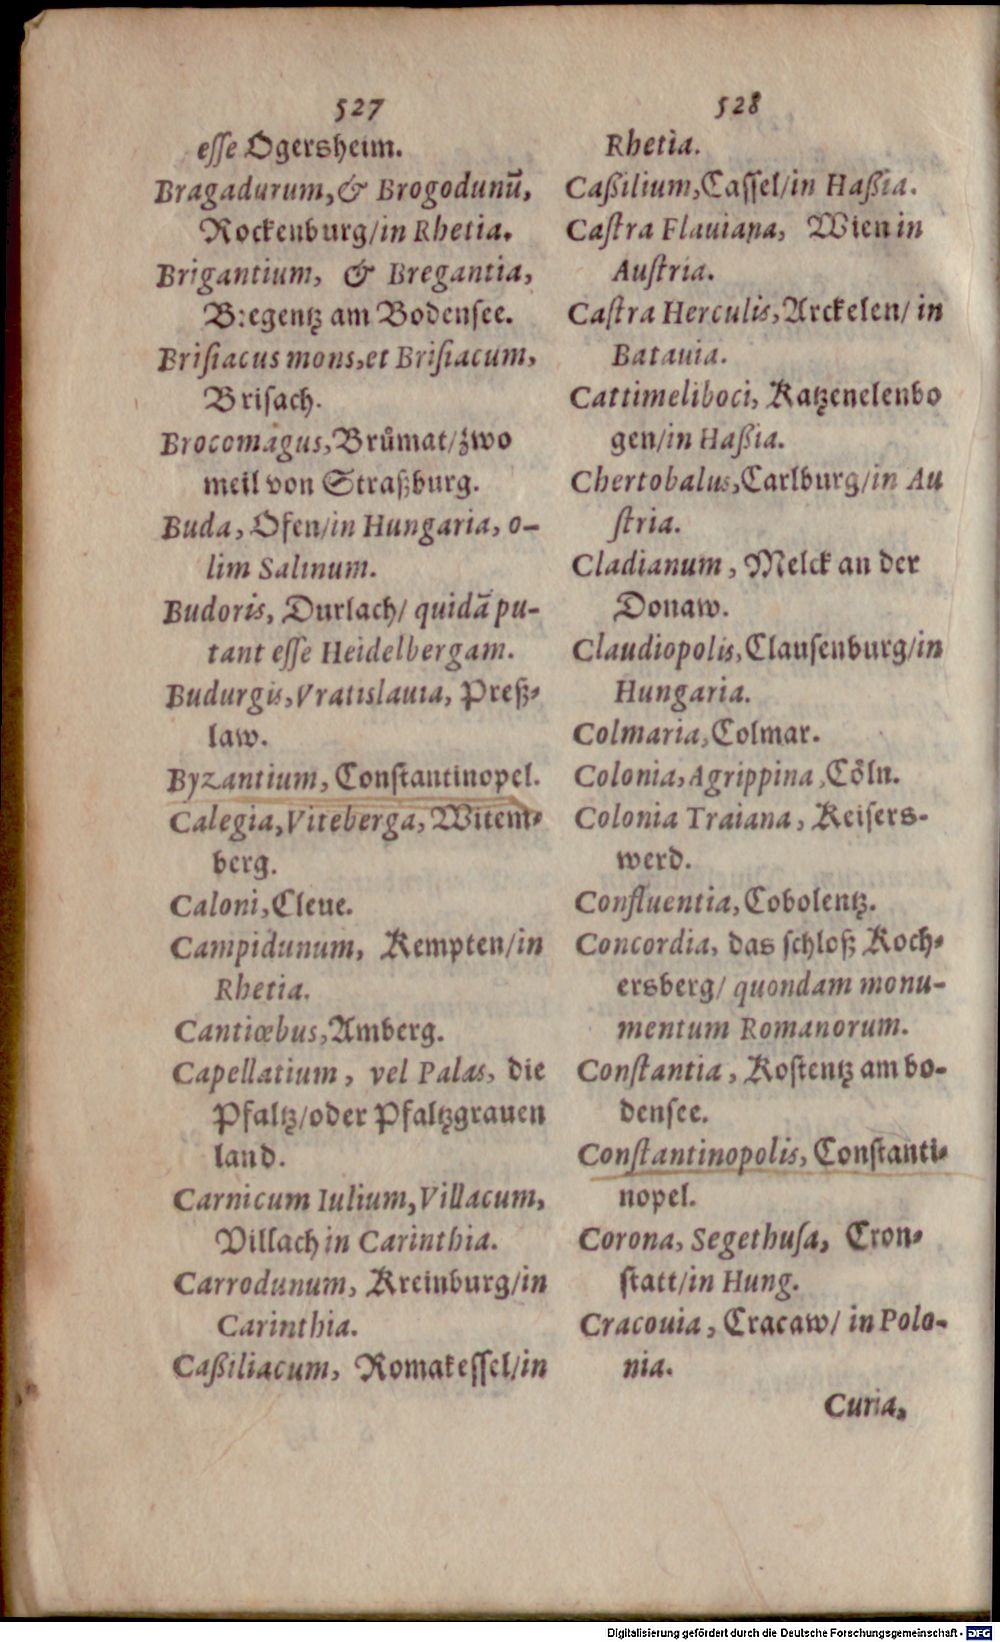 527
esse Ogersheim.
Bragadurum, & Brogodunū,
Rockenburg/in Rhetia.
Brigantium, & Bregantia,
Bregentz am Bodensee.
Brisiacus mons, et Brisiacum,
Brisach.
Brocomagus, Brůmat/zwo
meil von Straßburg.
Buda, Ofen/in Hungaria, o-
lim Salinum.
Budoris, Durlach/ quidā pu-
tant esse Heidelbergam.
Budurgis, Vratislauia, Preß-
law.
Byzantium, Constantinopel.
Calegia, Viteberga, Witem-
berg.
Caloni, Cleue.
Campidunum, Kempten/in
Rhetia.
Cantiœbus, Amberg.
Capellatium, vel Palas, die
Pfaltz/oder Pfaltzgrauen
land.
Carnicum Iulium, Villacum,
Villach in Carinthia.
Carrodunum, Kreinburg/in
Carinthia.
Caßiliacum, Romakessel/in
528
Rhetia.
Caßilium, Cassel/in Haßia.
Castra Flauiana, Wien in
Austria.
Castra Herculis, Arckelen/ in
Batauia.
Cattimeliboci, Katzenelenbo
gen/in Haßia.
Chertobalus, Carlburg/in Au
stria.
Cladianum, Melck an der
Donaw.
Claudiopolis, Clausenburg/in
Hungaria.
Colmaria, Colmar.
Colonia, Agrippina, Cöln.
Colonia Traiana, Keisers-
werd.
Confluentia, Cobolentz.
Concordia, das schloß Koch-
ersberg/ quondam monu-
mentum Romanorum.
Constantia, Kostentz am bo-
densee.
Constantinopolis, Constanti-
nopel.
Corona, Segethusa, Cron-
statt/in Hung.
Cracouia, Cracaw/ in Polo-
nia.
Curia,
Digitalisierung gefördert durch die Deutsche Forschungsgemeinschaft - DFG